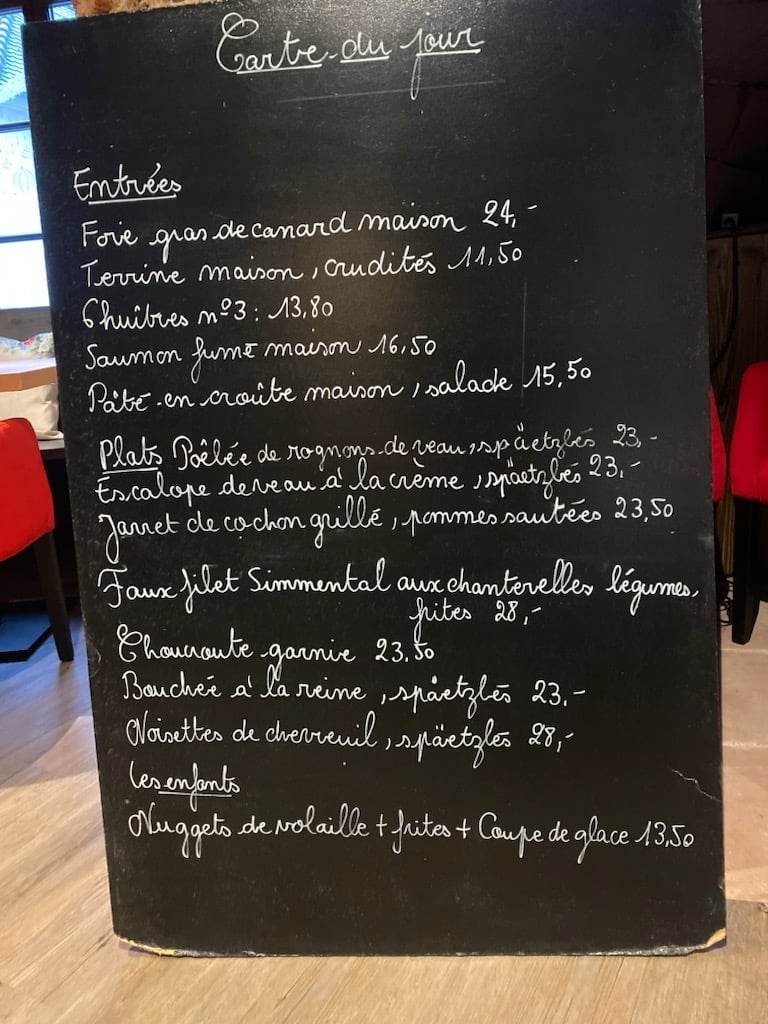 Carte du jour
Entrées
Foie gras de canard maison 24,-
Terrine maison, crudités 11,50
6 huîtres n°3 : 13,80
Saumon fumé maison 16,50
Pâté en croûte maison, salade 15,50
Plats Poêlée de rognons de veau, späetzlés 23,-
Escalope de veau à la crème, späetzlés 23,-
Jarret de cochon grillé, pommes sautées 23,50
Faux filet Simmental aux chanterelles légumes,
frites 28,-
Choucroute garnie 23.50
Bouchée à la reine, späetzlés 23.-
Noisettes de chevreuil, späetzlés 28,-
Les enfants
Nuggets de volaille + frites + Coupe de glace 13,50